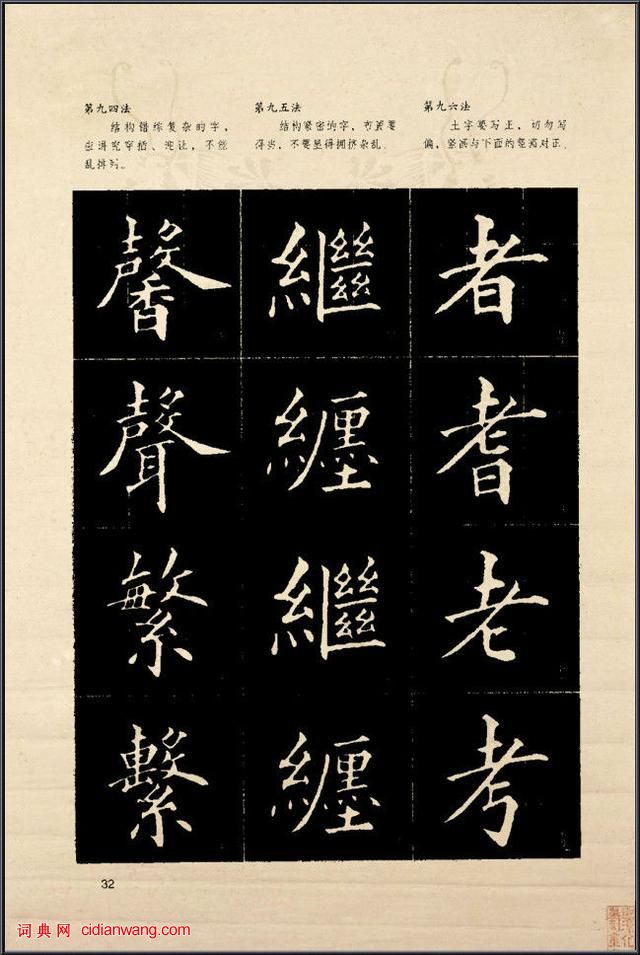 第九四法
结构错综复杂的字,
应讲究穿插、迎让,不能
乱排列。
第九五法
结构紧密的字,布置要
得当,不要显得拥挤杂乱.
第九六法
土字要写正,切勿写
偏,竖画与下面的竖画对正.
馨 繼 者
聲 纏 耆
繁 繼 老
繫 纏 考
32
词典网 cidianwang.com